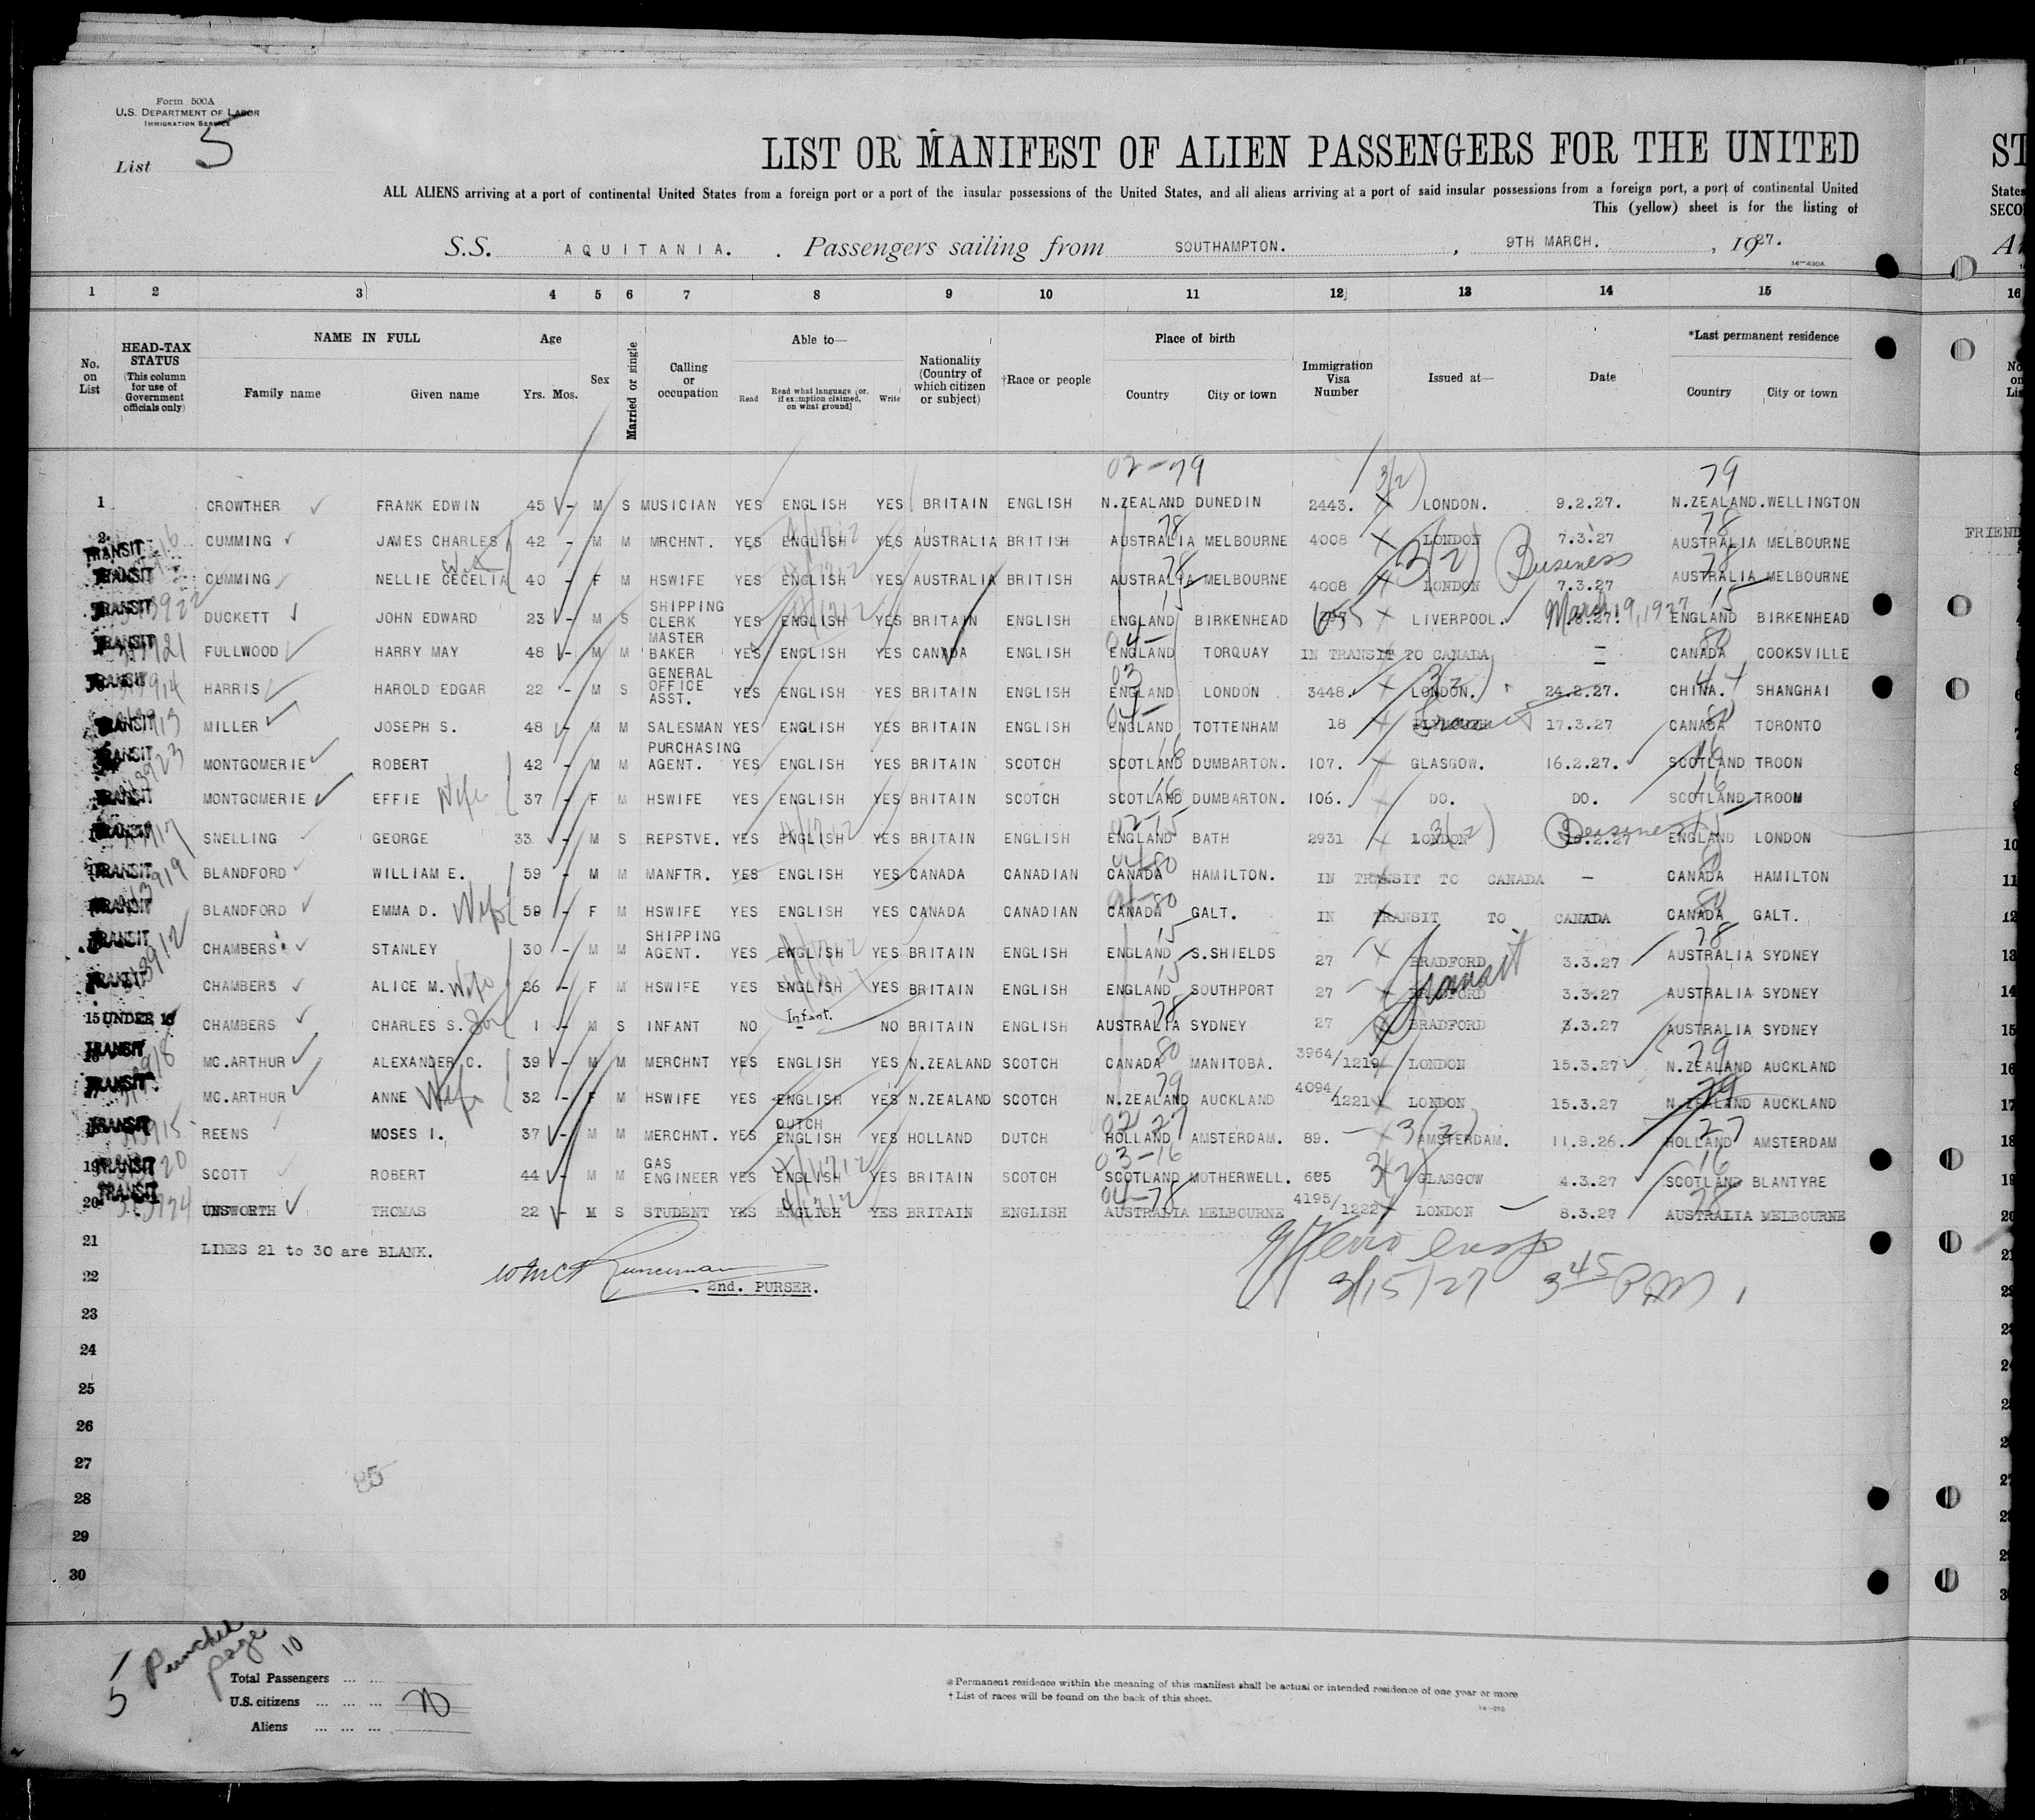 Form 500A
U.S. DEPARTMENT OF LABOR
IMMIGRATION SERVICE
List 5
LIST OR MANIFEST OF ALIEN PASSENGERS FOR THE UNITED
ST
ALL ALIENS arriving at a port of continental United States from a foreign port or a port of the insular possessions of the United States, and all aliens arriving at a port of said insular possessions from a foreign port, a port of continental United
States
This (yellow) sheet is for the listing of
SECO
S.S. AQUITANIA. . Passengers sailing from SOUTHAMPTON. , 9TH MARCH. , 1927.
14—430A
1 2 3 4 5 6 7 8 9 10 11 12 13 14 15 16
No. on List
HEAD-TAX STATUS (This column for use of Government officials only)
NAME IN FULL
Family name Given name
Age
Yrs. Mos.
Sex
Married or single
Calling or occupation
Able to—
Read Read what language [or, if exemption claimed, on what ground] Write
Nationality (Country of which citizen or subject)
†Race or people
Place of birth
Country City or town
Immigration Visa Number
Issued at—
Date
*Last permanent residence
Country City or town
02-79 3(2) 79
1 CROWTHER FRANK EDWIN 45 - M S MUSICIAN YES ENGLISH YES BRITAIN ENGLISH N.ZEALAND DUNEDIN 2443. LONDON. 9.2.27. N.ZEALAND. WELLINGTON
78 78
2 TRANSIT CUMMING JAMES CHARLES 42 - M M MRCHNT. YES ENGLISH YES AUSTRALIA BRITISH AUSTRALIA MELBOURNE 4008 LONDON 7.3.27 AUSTRALIA MELBOURNE FRIEND
78 3(2) Business 78
TRANSIT CUMMING NELLIE CECELIA 40 - F M HSWIFE YES ENGLISH YES AUSTRALIA BRITISH AUSTRALIA MELBOURNE 4008 LONDON 7.3.27 AUSTRALIA MELBOURNE
15 15
TRANSIT DUCKETT JOHN EDWARD 23 - M S SHIPPING CLERK YES ENGLISH YES BRITAIN ENGLISH ENGLAND BIRKENHEAD 655 LIVERPOOL. March 9, 1927 ENGLAND BIRKENHEAD
04- 80
TRANSIT FULLWOOD HARRY MAY 48 - M M MASTER BAKER YES ENGLISH YES CANADA ENGLISH ENGLAND TORQUAY IN TRANSIT TO CANADA — CANADA COOKSVILLE
03 3(2) 44
TRANSIT HARRIS HAROLD EDGAR 22 - M S GENERAL OFFICE ASST. YES ENGLISH YES BRITAIN ENGLISH ENGLAND LONDON 3448. LONDON. 24.2.27. CHINA. SHANGHAI
04- Transit 80
TRANSIT MILLER JOSEPH S. 48 - M M SALESMAN YES ENGLISH YES BRITAIN ENGLISH ENGLAND TOTTENHAM 18 PLYMOUTH 17.3.27 CANADA TORONTO
16 16
TRANSIT MONTGOMERIE ROBERT 42 - M M PURCHASING AGENT. YES ENGLISH YES BRITAIN SCOTCH SCOTLAND DUMBARTON. 107. GLASGOW. 16.2.27. SCOTLAND TROON
16 16
TRANSIT MONTGOMERIE EFFIE Wife 37 - F M HSWIFE YES ENGLISH YES BRITAIN SCOTCH SCOTLAND DUMBARTON. 106. DO. DO. SCOTLAND TROON
02-15 3(2) Business 15
TRANSIT SNELLING GEORGE 33 - M S REPSTVE. YES ENGLISH YES BRITAIN ENGLISH ENGLAND BATH 2931 LONDON ENGLAND LONDON 10
04-80 80
TRANSIT BLANDFORD WILLIAM E. 59 - M M MANFTR. YES ENGLISH YES CANADA CANADIAN CANADA HAMILTON. IN TRANSIT TO CANADA — CANADA HAMILTON 11
04-80 80
TRANSIT BLANDFORD EMMA D. Wife 59 - F M HSWIFE YES ENGLISH YES CANADA CANADIAN CANADA GALT. IN TRANSIT TO CANADA CANADA GALT. 12
15 78
TRANSIT CHAMBERS STANLEY 30 - M M SHIPPING AGENT. YES ENGLISH YES BRITAIN ENGLISH ENGLAND S.SHIELDS 27 BRADFORD 3.3.27 AUSTRALIA SYDNEY 13
15 Transit
TRANSIT CHAMBERS ALICE M. Wife 26 - F M HSWIFE YES ENGLISH YES BRITAIN ENGLISH ENGLAND SOUTHPORT 27 BRADFORD 3.3.27 AUSTRALIA SYDNEY 14
78
15 UNDER 16 CHAMBERS CHARLES S. Son 1 - M S INFANT NO Infant. NO BRITAIN ENGLISH AUSTRALIA SYDNEY 27 BRADFORD 3.3.27 AUSTRALIA SYDNEY 15
80 79
TRANSIT MC.ARTHUR ALEXANDER C. 39 - M M MERCHNT YES ENGLISH YES N.ZEALAND SCOTCH CANADA MANITOBA. 3964/1219 LONDON 15.3.27 N.ZEALAND AUCKLAND 16
79 79
TRANSIT MC.ARTHUR ANNE Wife 32 - F M HSWIFE YES ENGLISH YES N.ZEALAND SCOTCH N.ZEALAND AUCKLAND 4094/1221 LONDON 15.3.27 N.ZEALAND AUCKLAND 17
02 27 3(2) 27
TRANSIT REENS MOSES I. 37 - M M MERCHNT. YES DUTCH ENGLISH YES HOLLAND DUTCH HOLLAND AMSTERDAM. 89. AMSTERDAM. 11.9.26. HOLLAND AMSTERDAM 18
03-16 3(2) 16
19 TRANSIT SCOTT ROBERT 44 - M M GAS ENGINEER YES ENGLISH YES BRITAIN SCOTCH SCOTLAND MOTHERWELL. 685 GLASGOW 4.3.27 SCOTLAND BLANTYRE 19
04-78 78
20 TRANSIT UNSWORTH THOMAS 22 - M S STUDENT YES ENGLISH YES BRITAIN ENGLISH AUSTRALIA MELBOURNE 4195/1222 LONDON 8.3.27 AUSTRALIA MELBOURNE 20
21 LINES 21 to 30 are BLANK.
22 2nd. PURSER.
3/15/27 3 45 P.M.
23
24
25
26
27
85
28
29
30
Punched page 10
5
Total Passengers ... ...
U.S. citizens ... ... ... 20
Aliens ... ... ...
*Permanent residence within the meaning of this manifest shall be actual or intended residence of one year or more
† List of races will be found on the back of this sheet.